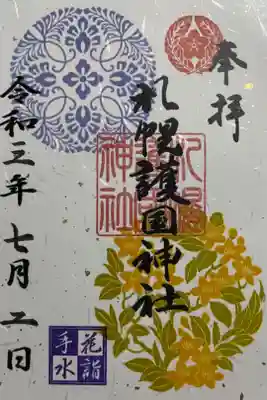 奉拝
札幌護国神社
札幌護国神社
令和三年七月二日
花詣
手水